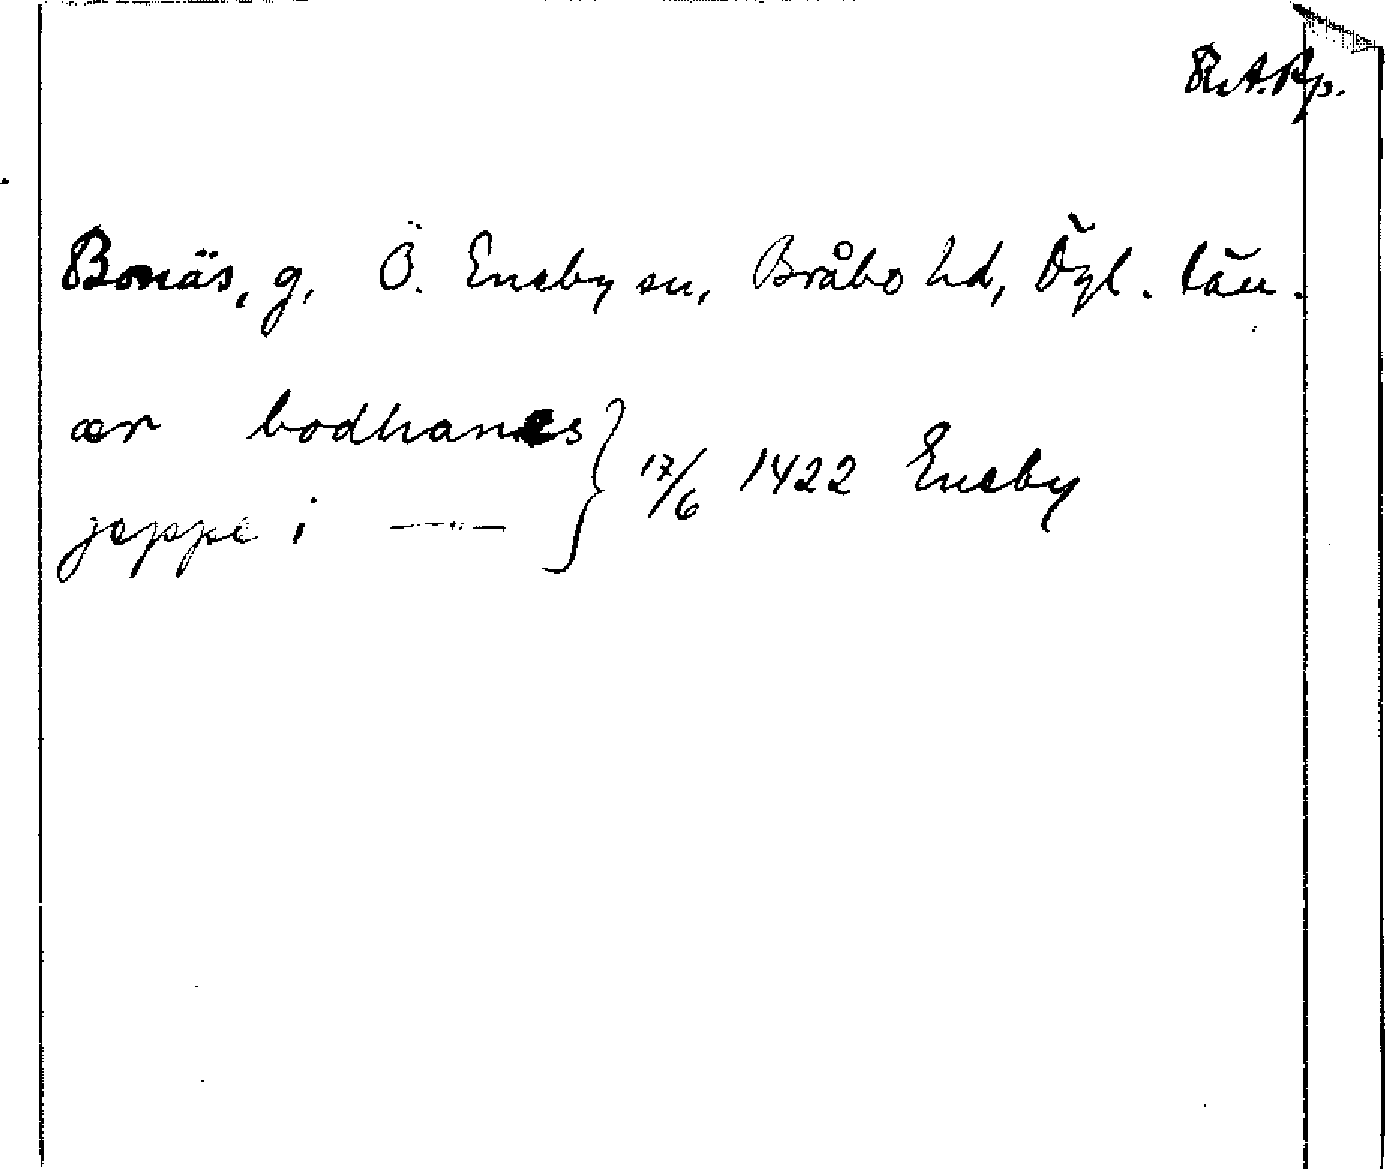 R.A.Pp.
Bonäs, g, Ö. Eneby sn, Bråbo hd, Ögl. län.
ær bodhanes } 17/6 1422 Eneby
jeppe i —"—